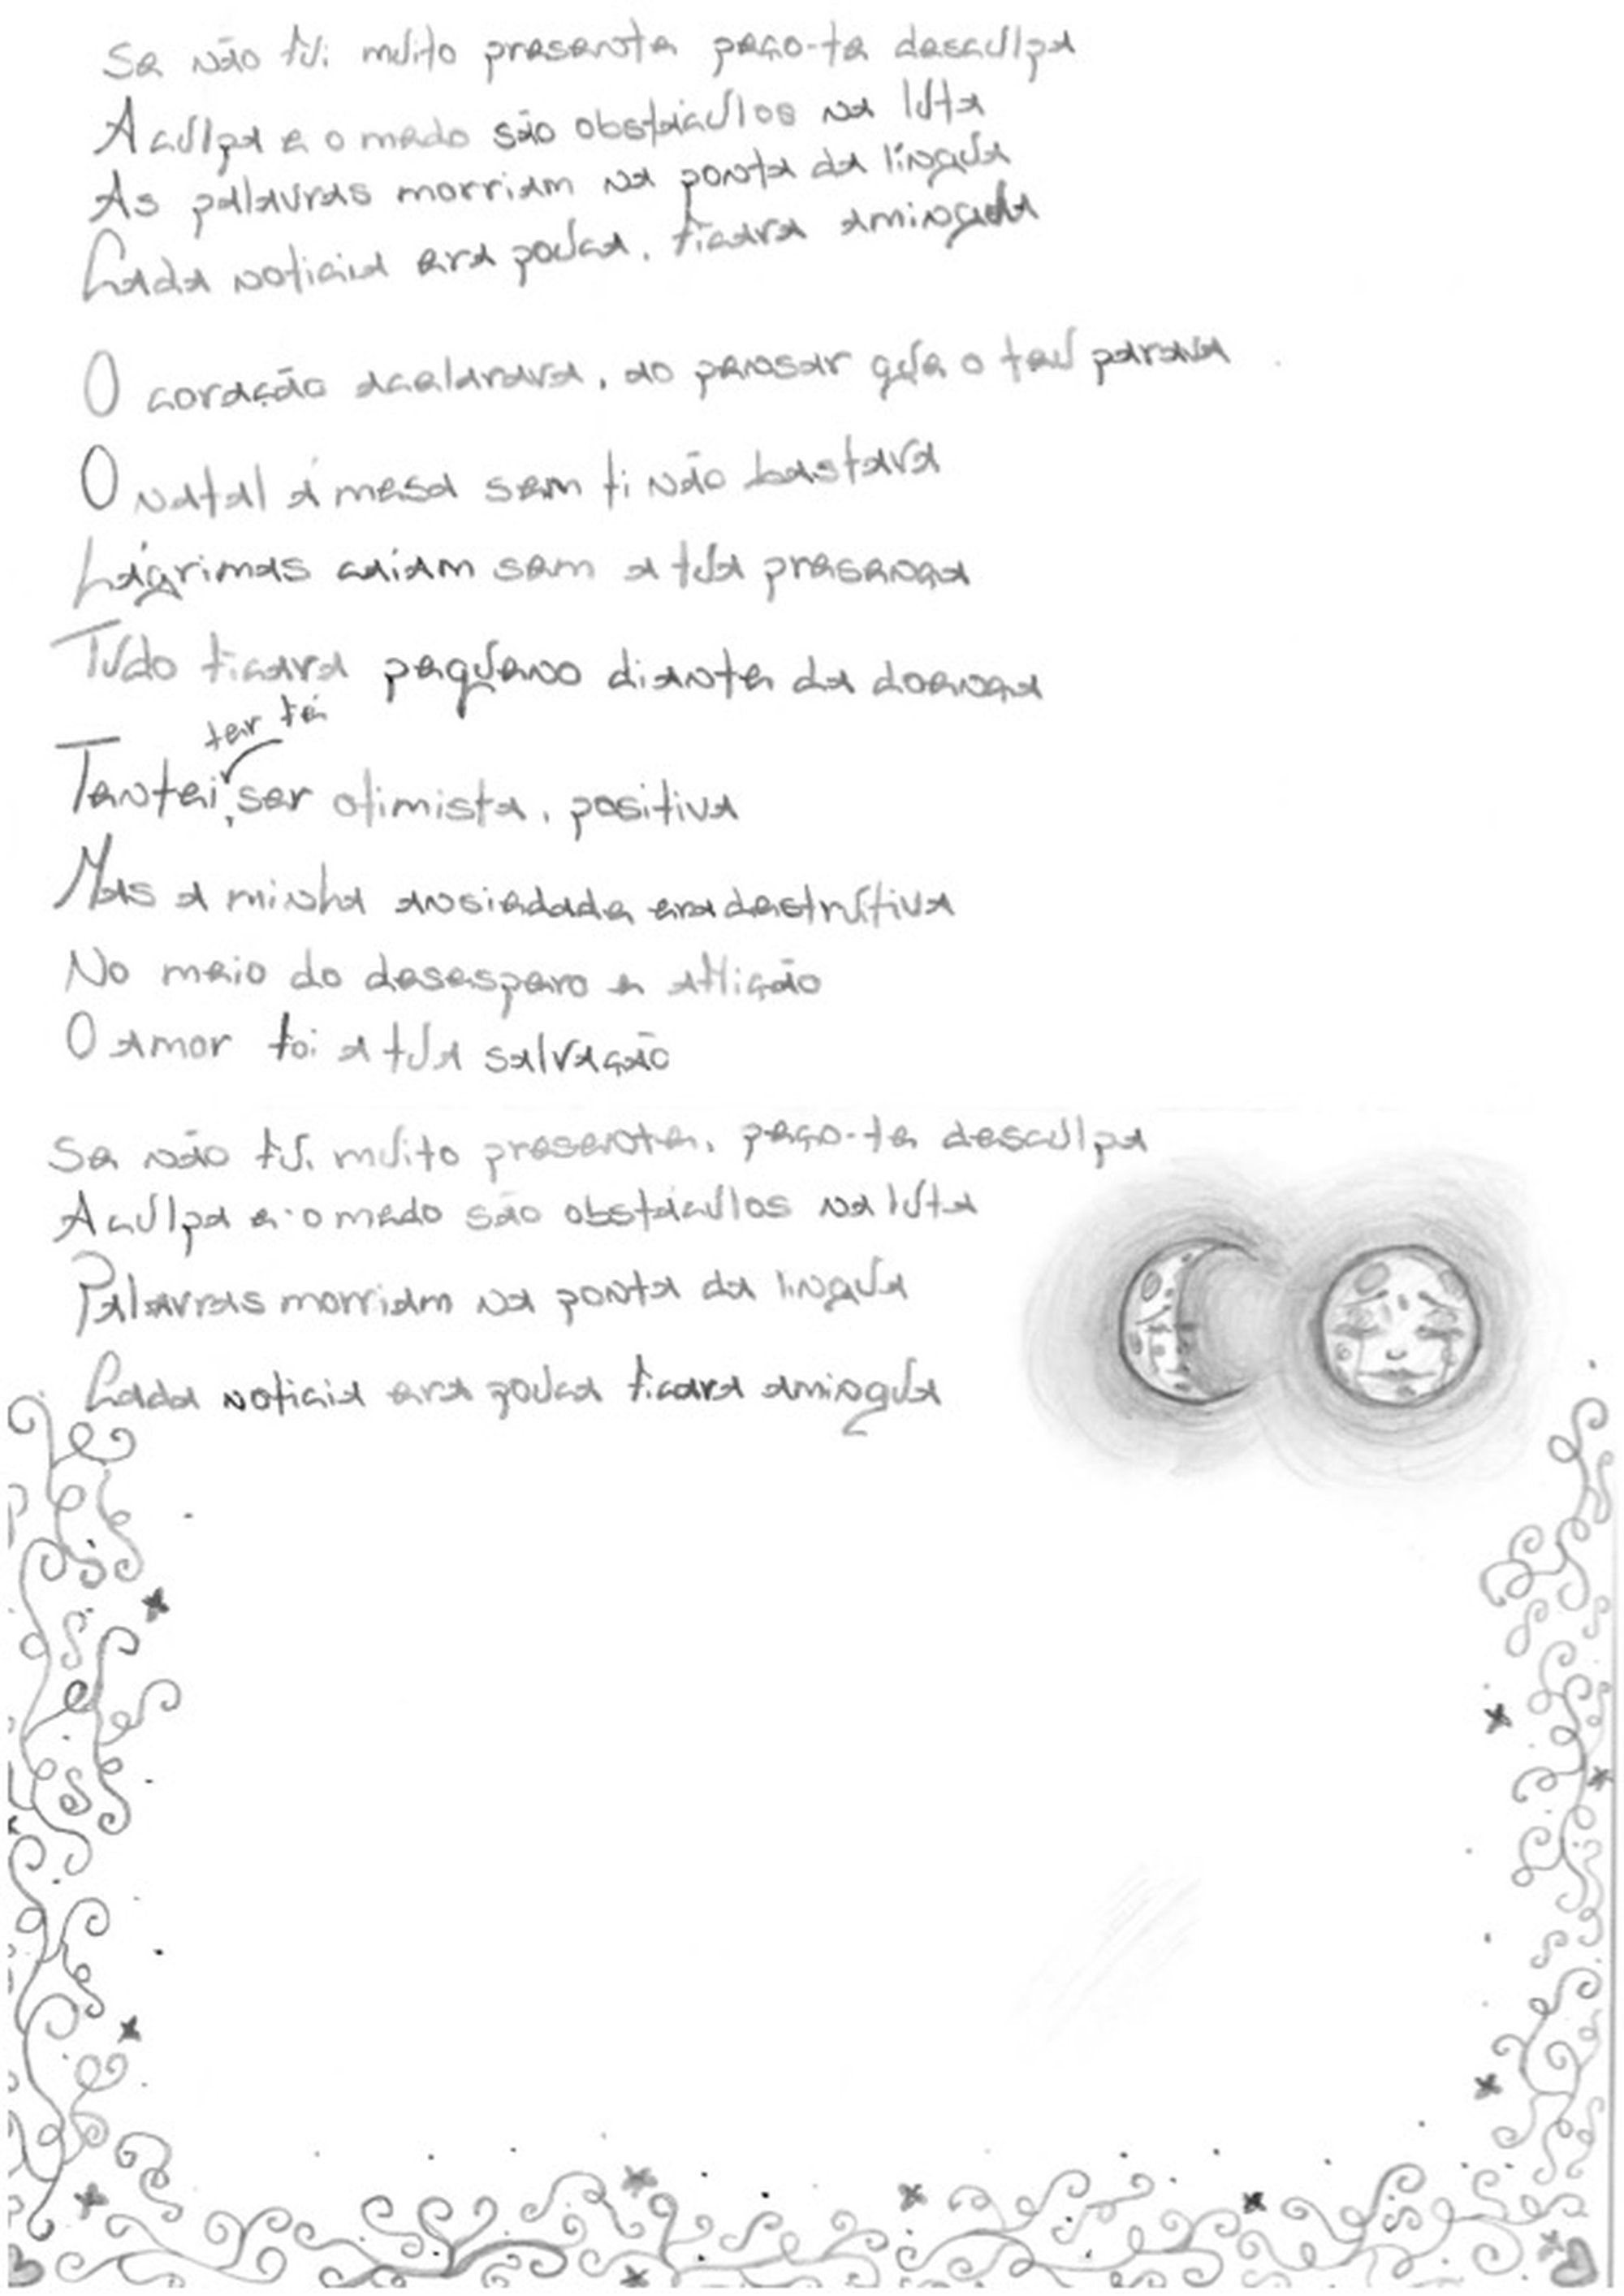 Se não fui muito presente peço-te desculpa
A culpa e o medo são obstáculos na luta
As palavras morriam na ponta da língua
Cada noticia era pouca, ficava a mingua
O coração acelarava, ao pensar que o teu parava
O natal á mesa sem ti não bastava
Lágrimas caiam sem a tua presença
Tudo ficava pequeno diante da doença
ter fé
Tentei, ser otimista, positiva
Mas a minha ansiedade era destrutiva
No meio do desespero e aflição
O amor foi a tua salvação
Se não fui muito presente, peço-te desculpa
A culpa e o medo são obstáculos na luta
Palavras morriam na ponta da lingua
Cada noticia era pouca ficava a mingua